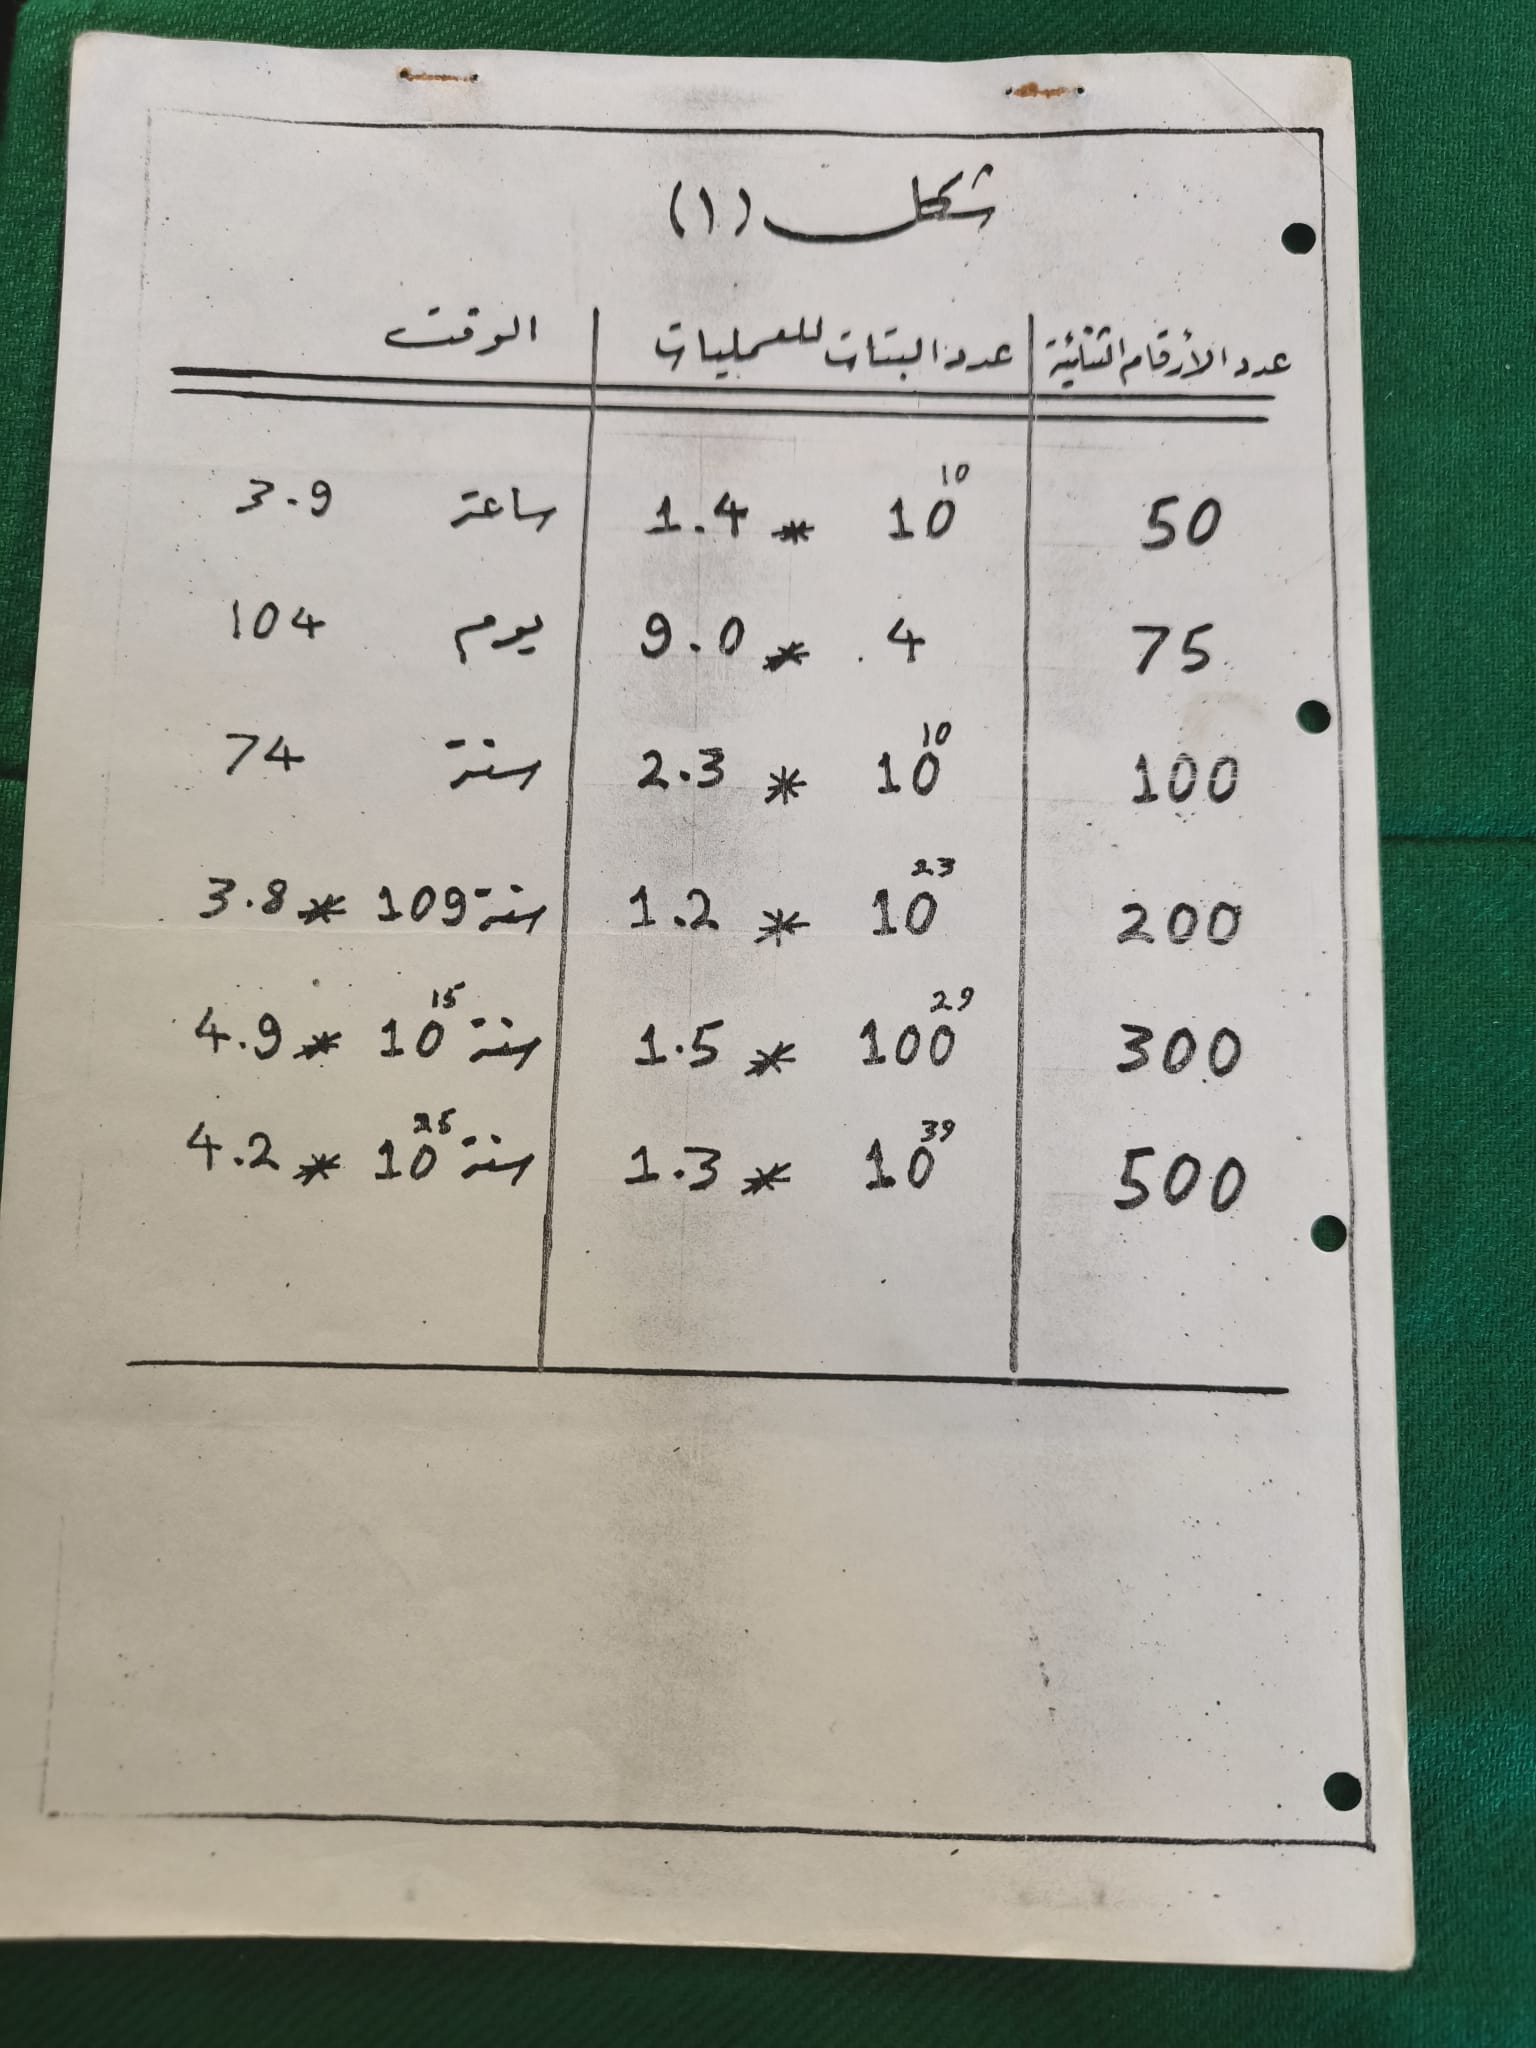 شكل (١)
عدد الأرقام الثنائية | عدد البتات للعمليات | الوقت
50 | 1.4 * 10^10 | 3.9 ساعة
75 | 9.0 * 4 | 104 يوم
100 | 2.3 * 10^10 | 74 سنة
200 | 1.2 * 10^23 | 3.8 * 109 سنة
300 | 1.5 * 100^29 | 4.9 * 10^15 سنة
500 | 1.3 * 10^39 | 4.2 * 10^25 سنة